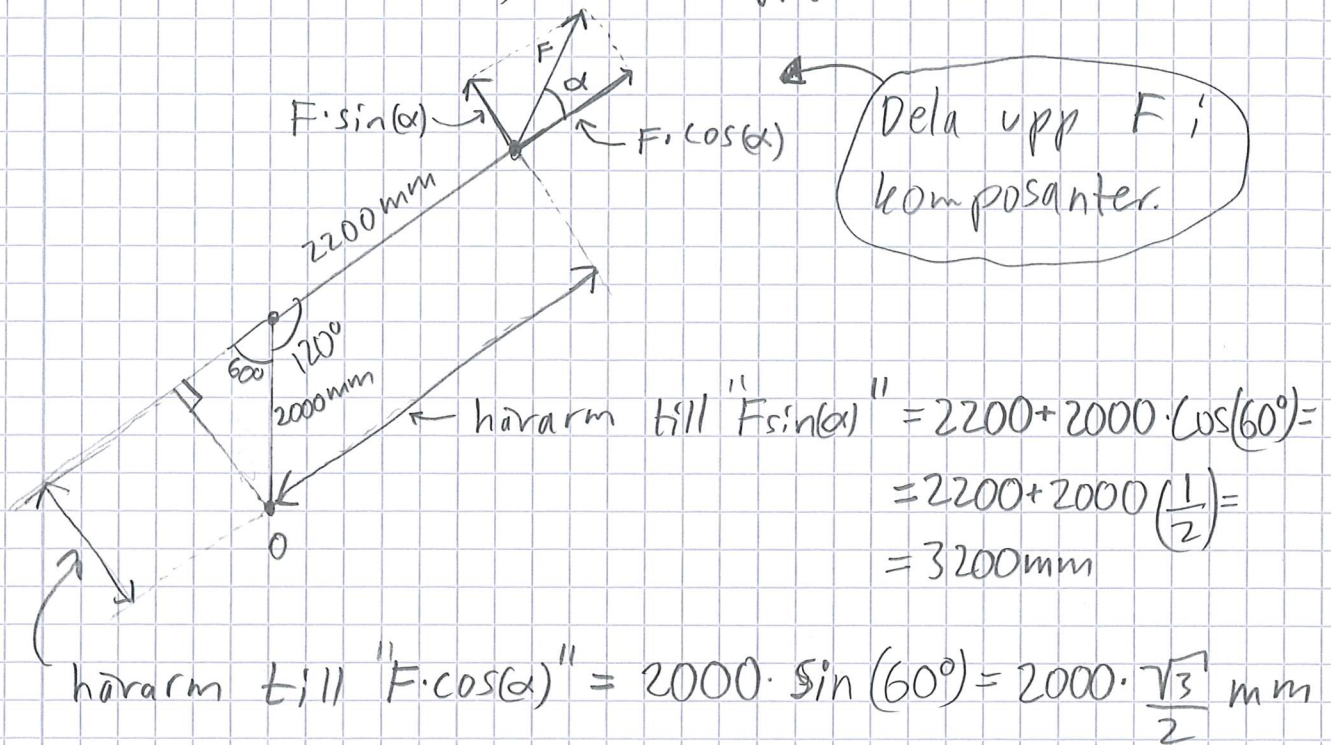 F
α
F·sin(α)
F·cos(α)
Dela upp F i
komposanter.
2200mm
60°
120°
2000mm
hävarm till "Fsin(α)" = 2200+2000·cos(60°)=
=2200+2000(1/2)=
= 3200mm
O
hävarm till "F·cos(α)" = 2000·sin(60°)=2000·√3/2 mm